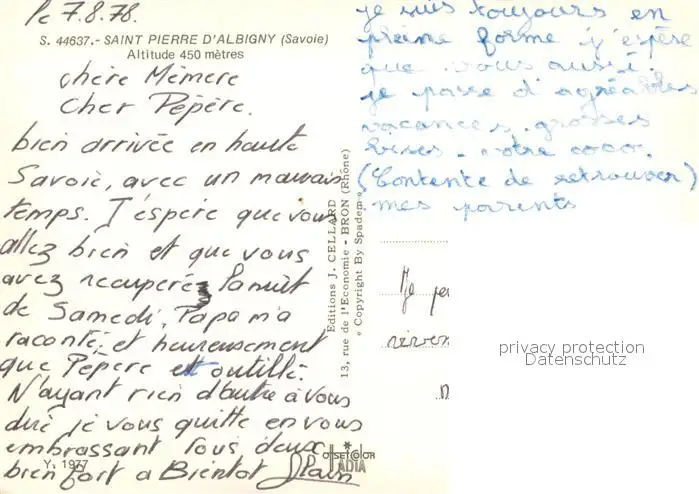 le 7.8.78.
S. 44637.- SAINT PIERRE D'ALBIGNY (Savoie)
Altitude 450 mètres
chère Mémère
Cher Pépère.
bien arrivée en haute
Savoie, avec un mauvais
temps. J'espère que vous
allez bien et que vous
avez recuperé la nuit
de Samedi, Papa m'a
raconté, et heureusement
que Pépère est outillé.
N'ayant rien d'autre à vous
dire je vous quitte en vous
embrassant tous deux
bien fort a Bientot
Y. 1977
je suis toujours en
pleine forme j'espère
que vous aussi.
je passe d'agréables
vacances. grosses
bises. votre coco.
(Contente de retrouver)
mes parents
Editions J. CELLARD
13, rue de l'Economie - BRON (Rhône)
« Copyright By Spadem »
OFFSETCOLOR
IADIA
privacy protection
Datenschutz